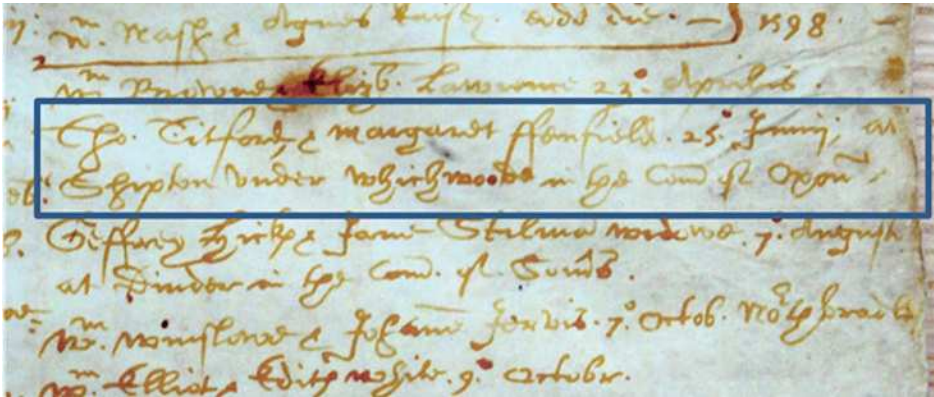 Wm. Nash & Agnes eode die. 1598
Wm Browne & Elizb. Lawrence 23° Aprilis.
Tho. Titford & Margaret ffenfield. 25° Junij, at
Shipton vnder Whichwoode in the Com̄ of Oxoñ
Geffrey Hickes & Jane Stilman widowe. 7. August
at Dinder in the Com. of Som̄s.
Wm. Winslowe & Johane Jervis. 7° Octob.
Wm Elliot & Edith White. 9° Octobr.